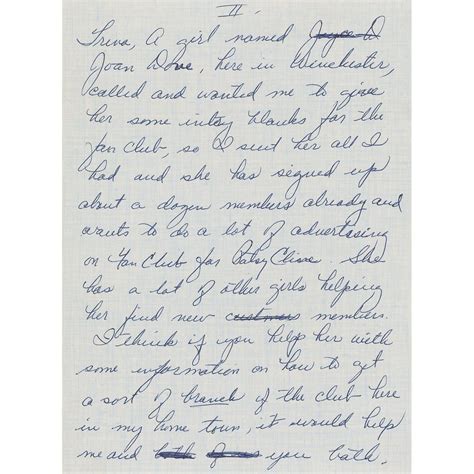 II.
Treva, A girl named Joyce D
Joan Dove, here in Winchester,
called and wanted me to give
her some intsy blanks for the
fan club, so I sent her all I
had and she has segned up
about a dozen members already and
wants to do a lot of advertising
on Fan Club for Patsy Cline. She
has a lot of other girls helping
her find new custmers members.
I think if you help her with
some information on how to get
a sort of branch of the club here
in my home town, it would help
me and both you both.